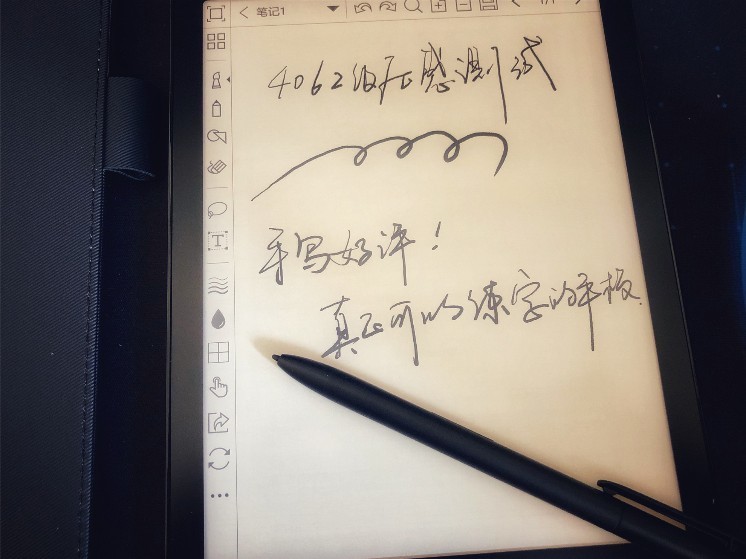 笔记1
4062级压感测试
手写好评!
真正可以练字的平板.